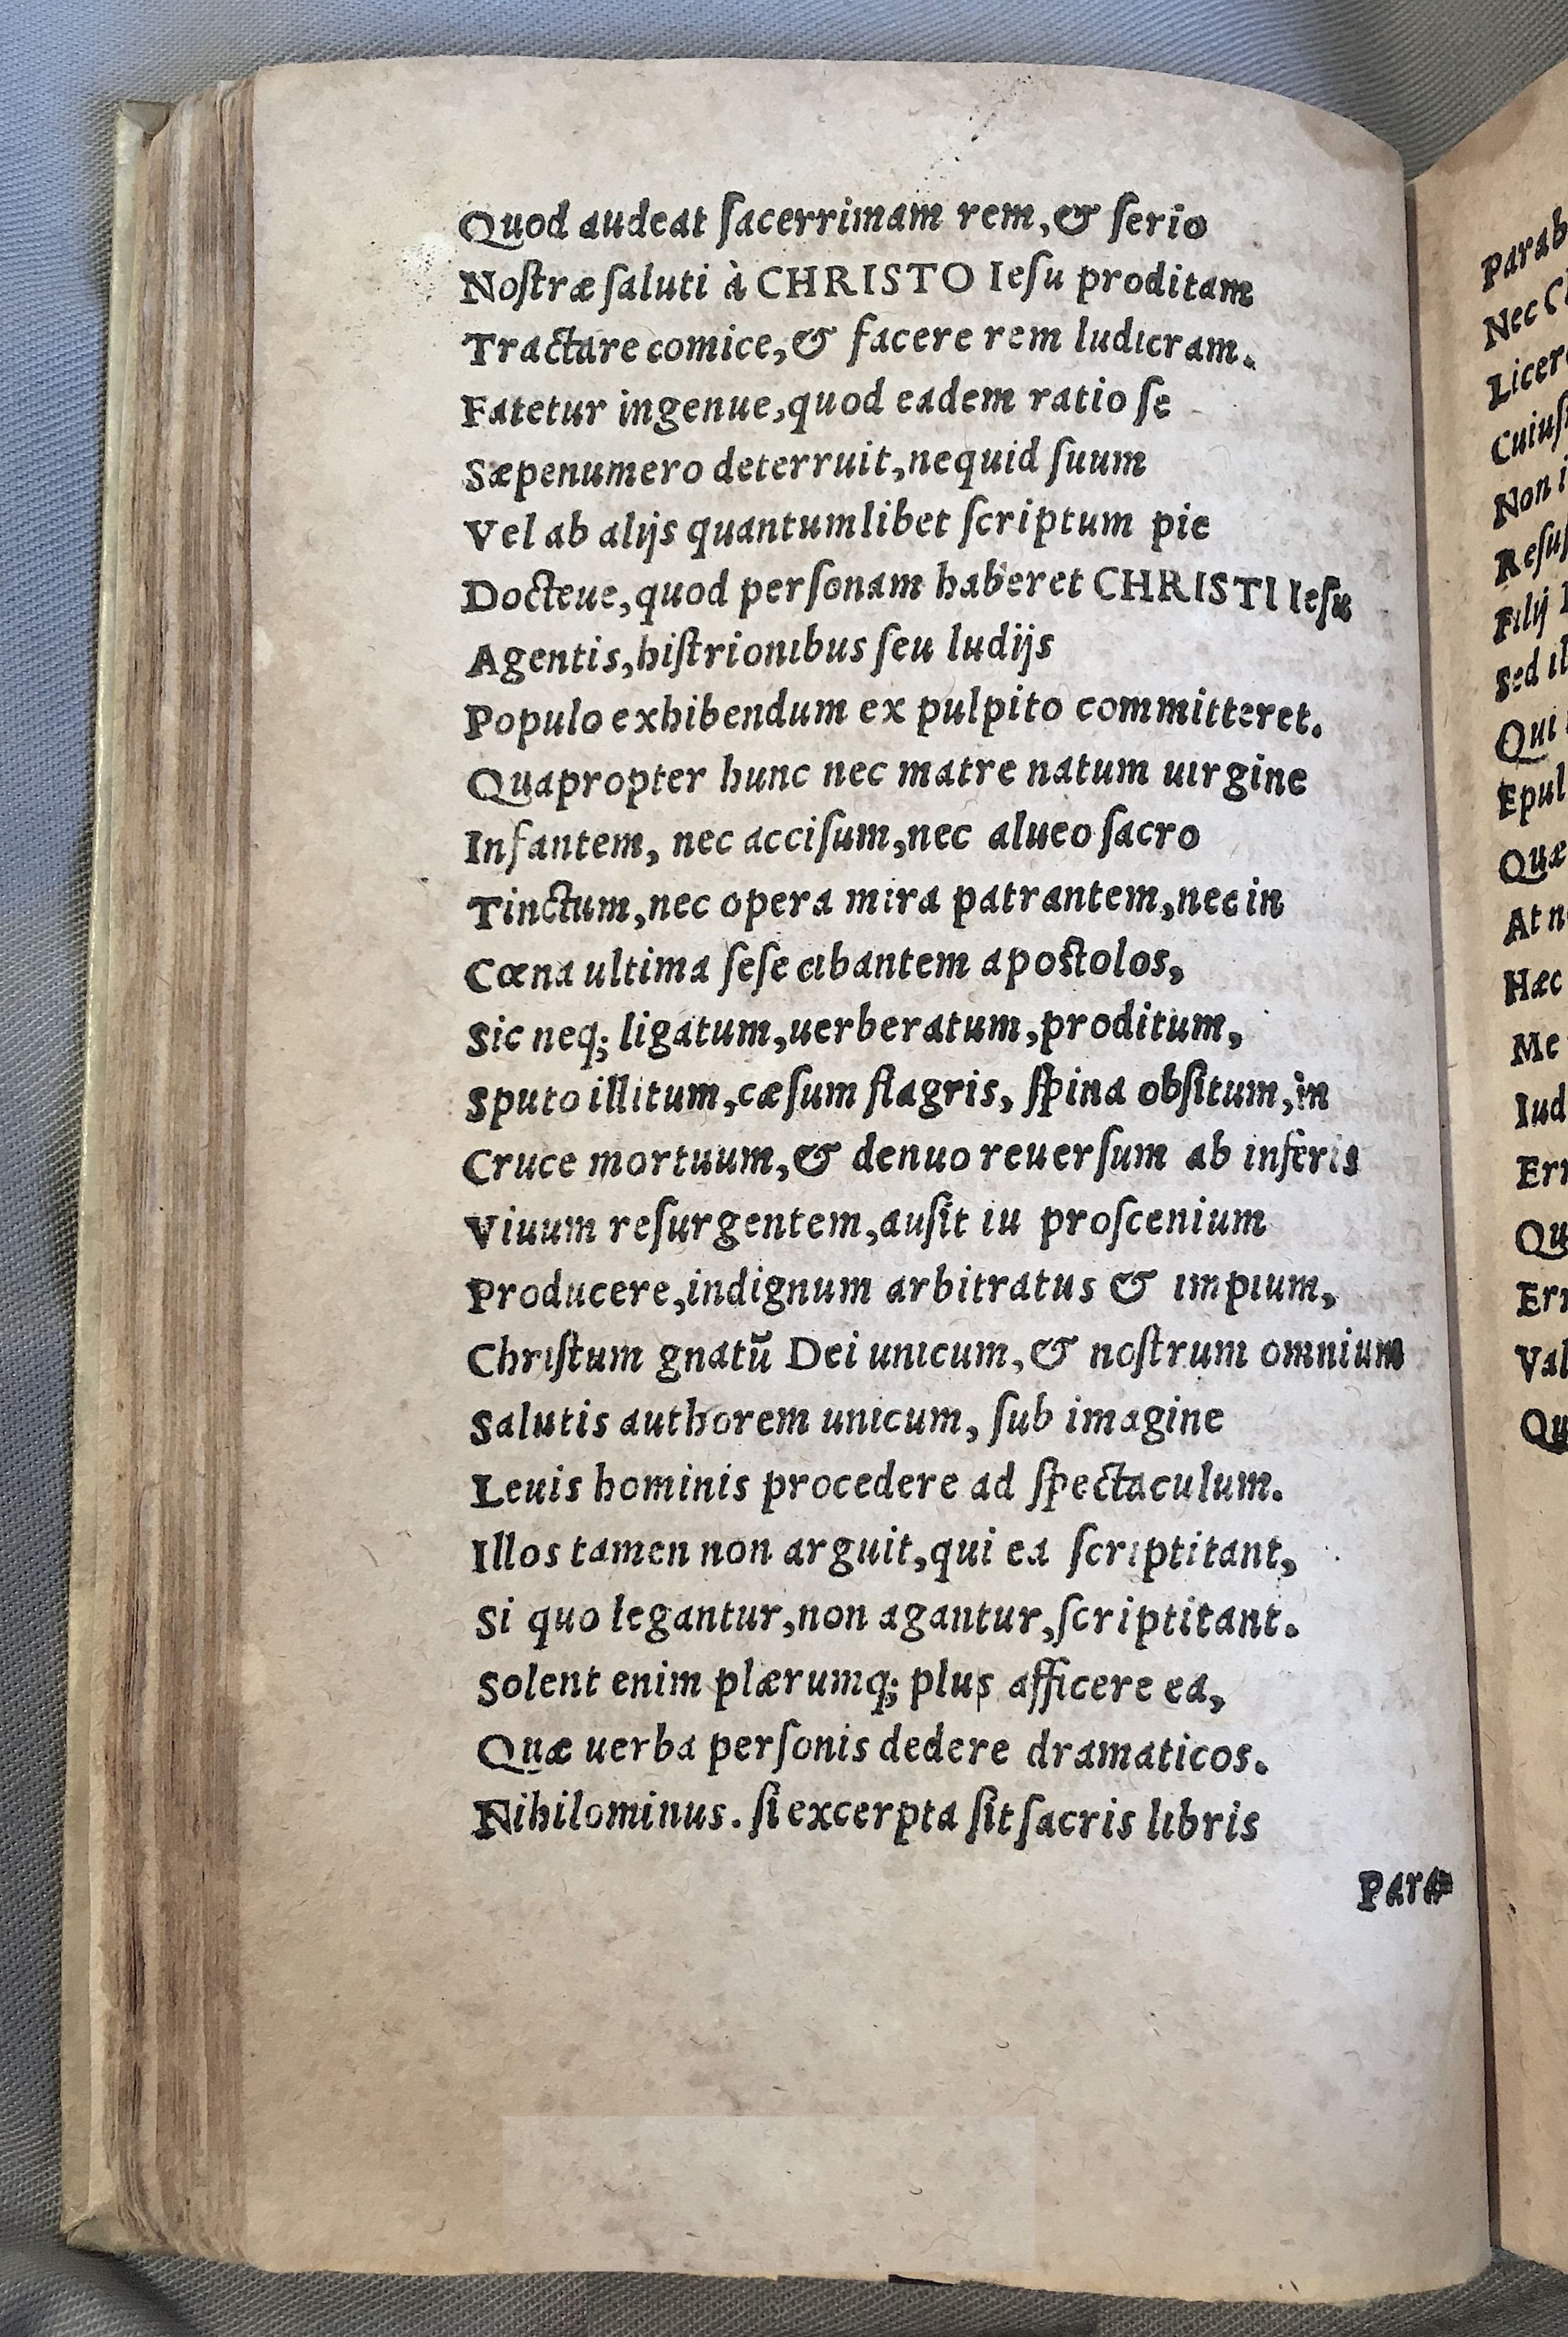 Quod audeat ſacerrimam rem,& ſerio
Noſtræ ſaluti à CHRISTO Ieſu proditam
Tractare comice,& facere rem ludicram.
Fatetur ingenue,quod eadem ratio ſe
Sæpenumero deterruit,nequid ſuum
Vel ab alijs quantumlibet ſcriptum pie
Docteue,quod perſonam haberet CHRISTI Ieſu
Agentis,hiſtrionibus ſeu ludijs
Populo exhibendum ex pulpito committeret.
Quapropter hunc nec matre natum uirgine
Infantem, nec acciſum,nec alueo ſacro
Tinctum,nec opera mira patrantem,nec in
Cœna ultima ſeſe cibantem apoſtolos,
Sic neq; ligatum,uerberatum,proditum,
Sputo illitum,cæſum flagris, ſpina obſitum,in
Cruce mortuum,& denuo reuerſum ab inferis
Viuum reſurgentem,auſit iu proſcenium
Producere,indignum arbitratus & impium,
Chriſtum gnatū Dei unicum,& noſtrum omnium
Salutis authorem unicum, ſub imagine
Leuis hominis procedere ad ſpectaculum.
Illos tamen non arguit,qui ea ſcriptitant,
Si quo legantur,non agantur,ſcriptitant.
Solent enim plærumq; plus afficere ea,
Quæ uerba perſonis dedere dramaticos.
Nihilominus. ſi excerpta ſit ſacris libris
Para=
Parab
Nec
Licer
Cuiuſ
Non i
Reſuſ
Filij
Sed il
Qui
Epul
Quæ
At n
Hæc
Me
Iud
Err
Qu
Err
Val
Qu